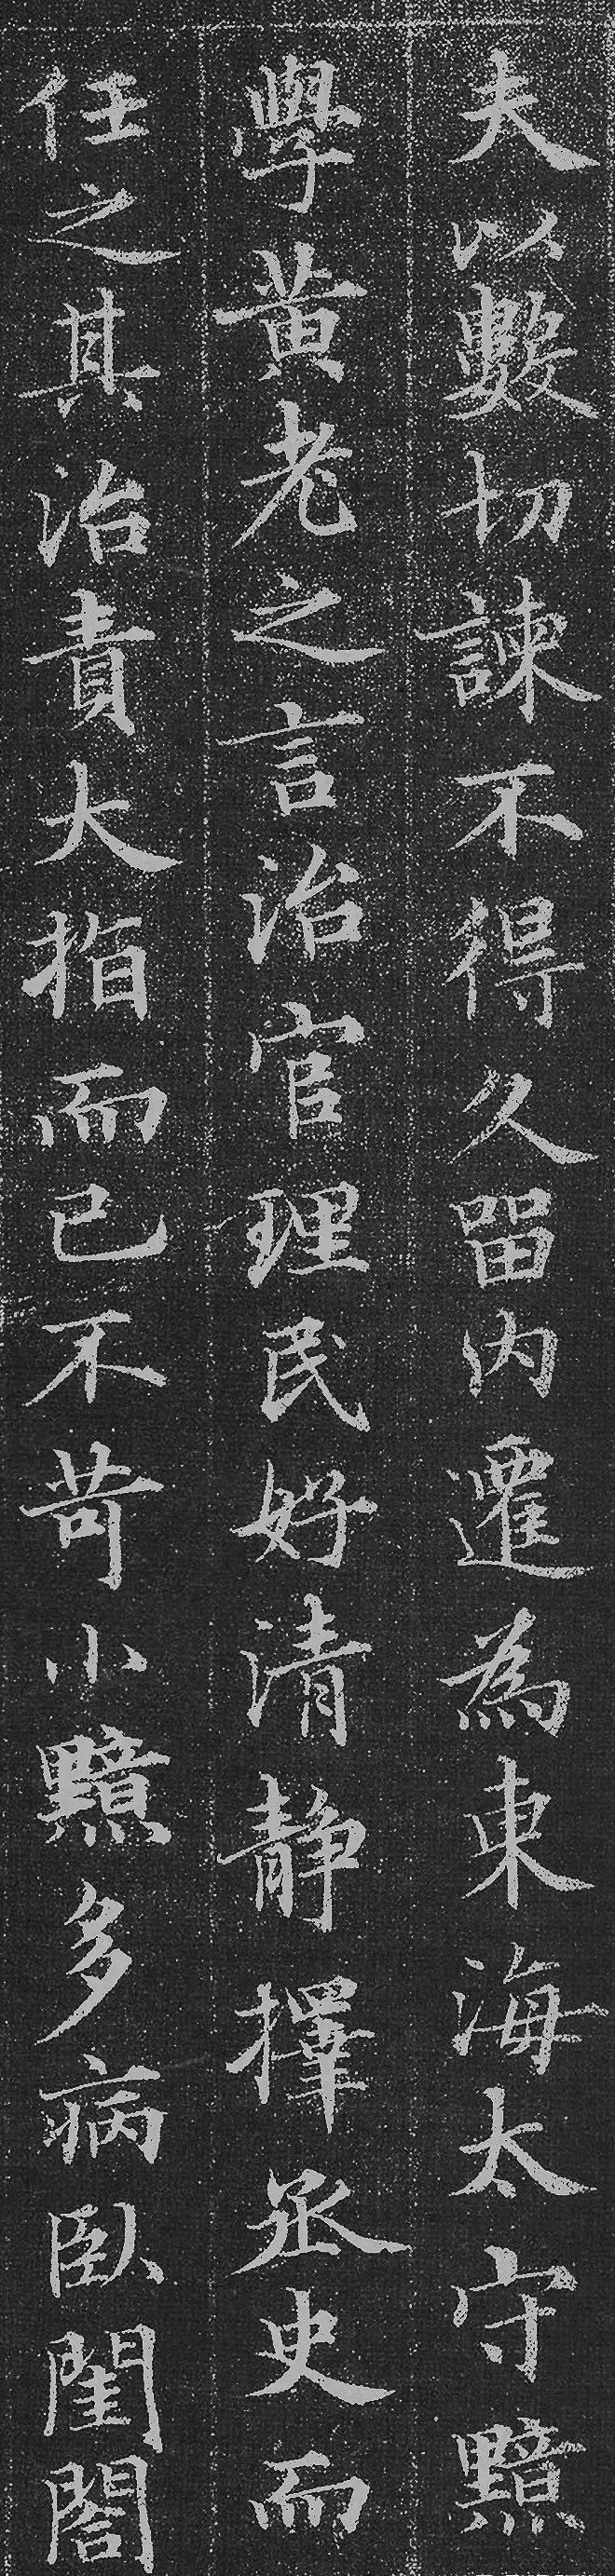 夫以數切諫不得久留内遷為東海太守黯
學黃老之言治官理民好清静擇丞史而
任之其治責大指而已不苛小黯多病臥閨閤